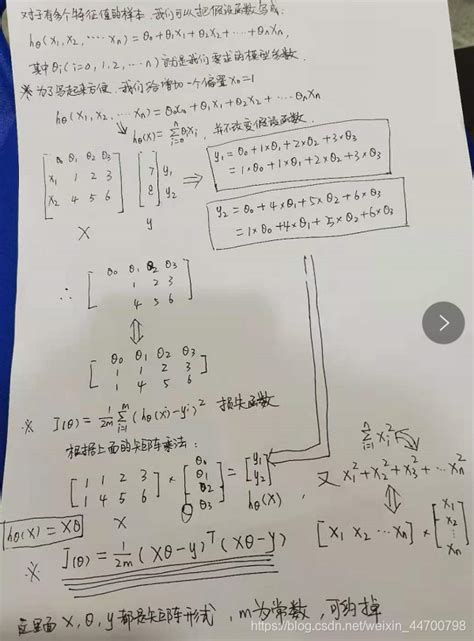 对于有多个特征值的样本，我们可以把假设函数写成：
hθ(x₁, x₂, ⋯⋯ xn) = θ₀+θ₁x₁+θ₂x₂+⋯+θnxn,
其中θi (i=0, 1, 2, ⋯ n) 就是我们要求的模型参数.
※ 为了写起来方便，我们给增加一个偏置 x₀=1
hθ(x₁, x₂, ⋯⋯ xn) = θ₀x₀+θ₁x₁+θ₂x₂+⋯θnxn
hθ(x)= Σ(i=0→n) θixi , 并不改变假设函数.
θ₀ θ₁ θ₂ θ₃
x₁ 1 2 3
x₂ 4 5 6
X
7 y₁
8 y₂
y
y₁ = θ₀+1×θ₁+2×θ₂+3×θ₃
= 1×θ₀+1×θ₁+2×θ₂+3×θ₃
y₂ = θ₀+4×θ₁+5×θ₂+6×θ₃
= 1×θ₀+4×θ₁+5×θ₂+6×θ₃
∴ θ₀ θ₁ θ₂ θ₃
1 2 3
4 5 6
θ₀ θ₁ θ₂ θ₃
1 1 2 3
1 4 5 6
※ J(θ) = 1/2m Σ(i=1→m) (hθ(xi)-yi)² 损失函数
根据上面的矩阵乘法：
[1 1 2 3
1 4 5 6] × [θ₀ θ₁ θ₂ θ₃] = [y₁ y₂]
X θ hθ(x) ,
hθ(x) = Xθ
又 Σ(i=1→n) xi²
x₁²+x₂²+x₃²+⋯xn²
[x₁ x₂ ⋯ xn] × [x₁ x₂ ⋮ xn]
※ J(θ) = 1/2m (Xθ-y)ᵀ(Xθ-y)
这里面 X, θ, y 都是矩阵形式，m为常数，可约掉
https://blog.csdn.net/weixin_44700798